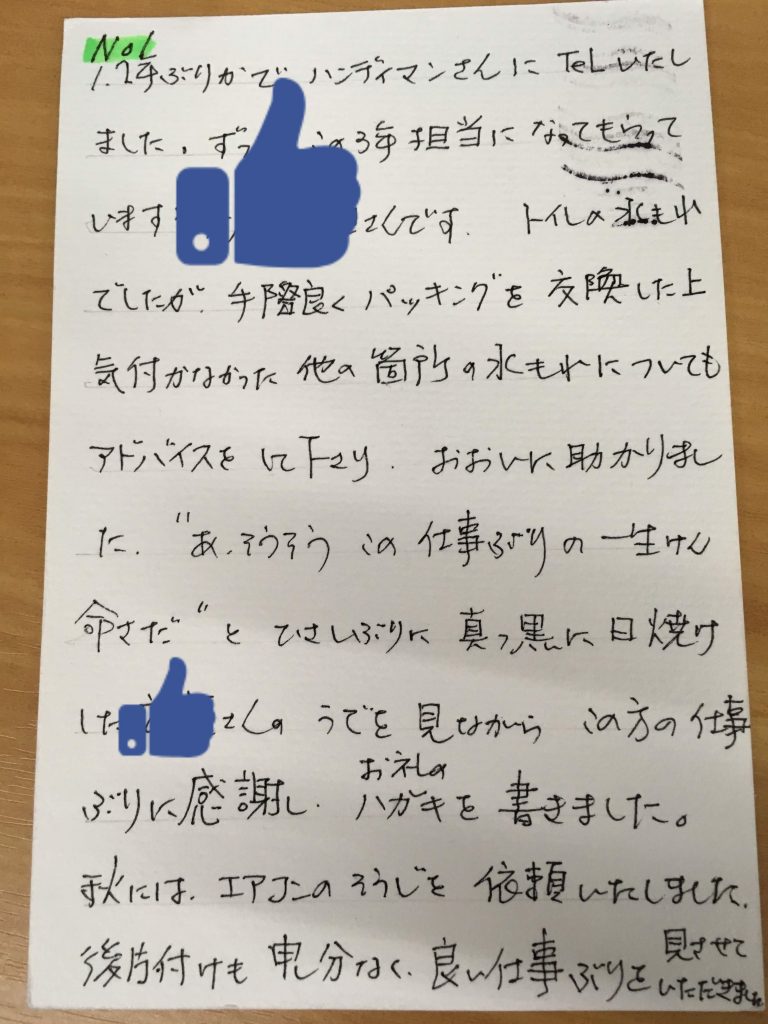 No1
1.2年ぶりかで ハンディマンさんに TeLいたし
ました。ず の3年担当になってもらって
います さんです. トイレの水もれ
でしたが、手際良く パッキングを 交換した上
気付かなかった 他の箇所の水もれについても
アドバイスを して下さり、おおいに助かりまし
た. "あ、そうそう この 仕事ぶりの 一生けん
命さだ" と ひさしぶりに 真っ黒に日焼け
した さんの うでを 見ながら この方の仕事
ぶりに感謝し、お礼の ハガキを 書きました。
秋には、エアコンの そうじを 依頼いたしました、
後片付けも 申し分なく、良い仕事ぶりを 見させて
いただきました